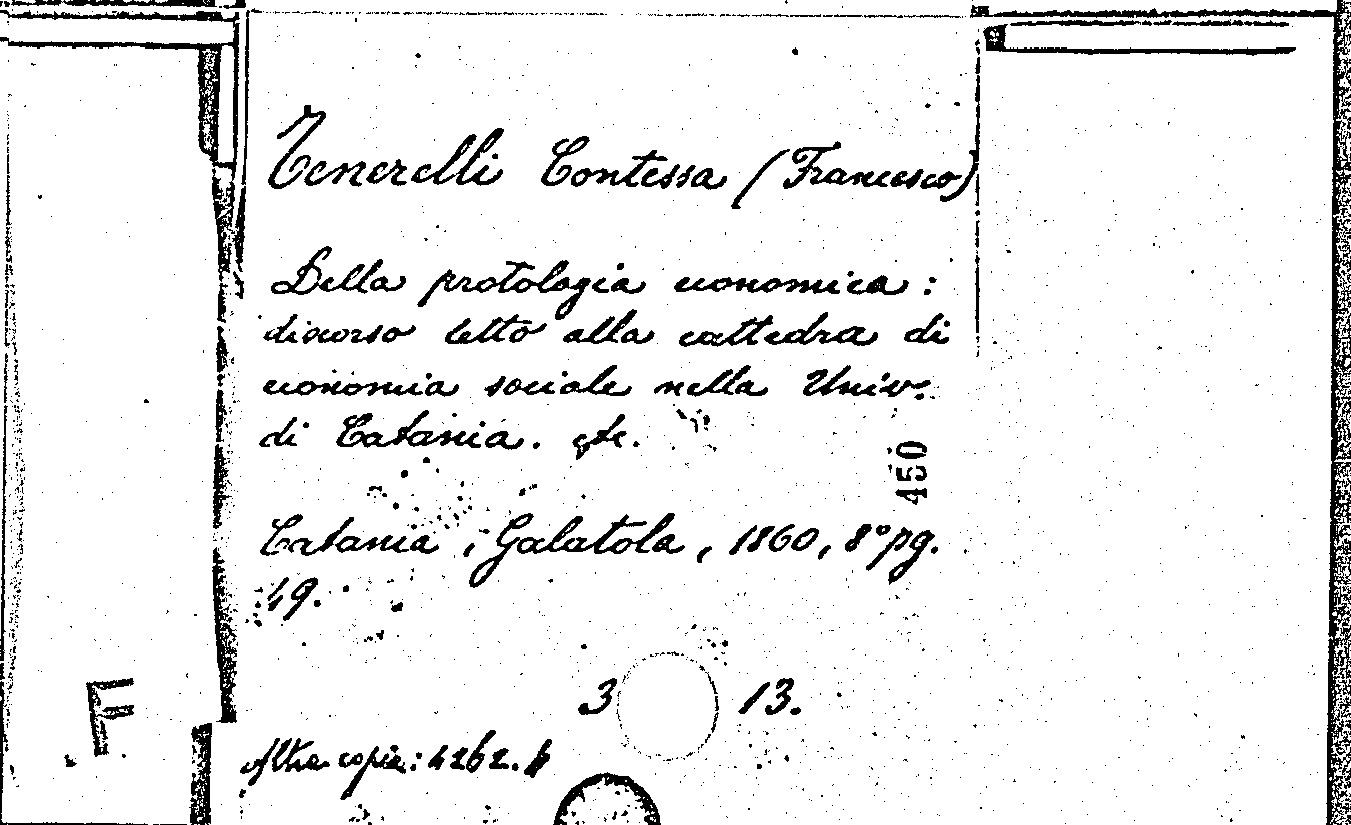 Tenerelli Contessa (Francesco)
Della protologia economica :
discorso letto alla cattedra di
economia sociale nella Univ.
di Catania. etc.
450
Catania, Galatola, 1860, 8° pg.
49.
3 13.
F
Altra copia: 4262.